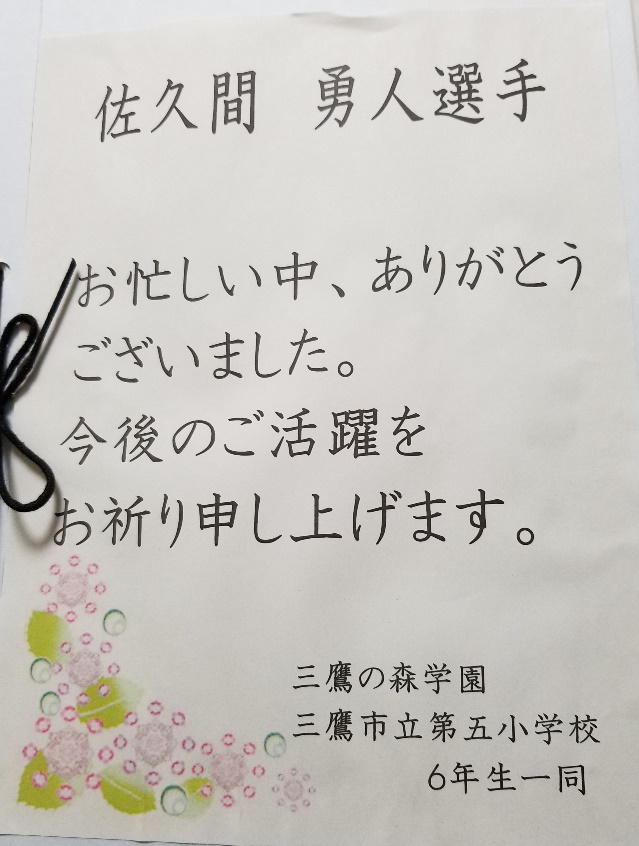 佐久間　勇人選手
お忙しい中、ありがとう
ございました。
今後のご活躍を
お祈り申し上げます。
三鷹の森学園
三鷹市立第五小学校
6年生一同